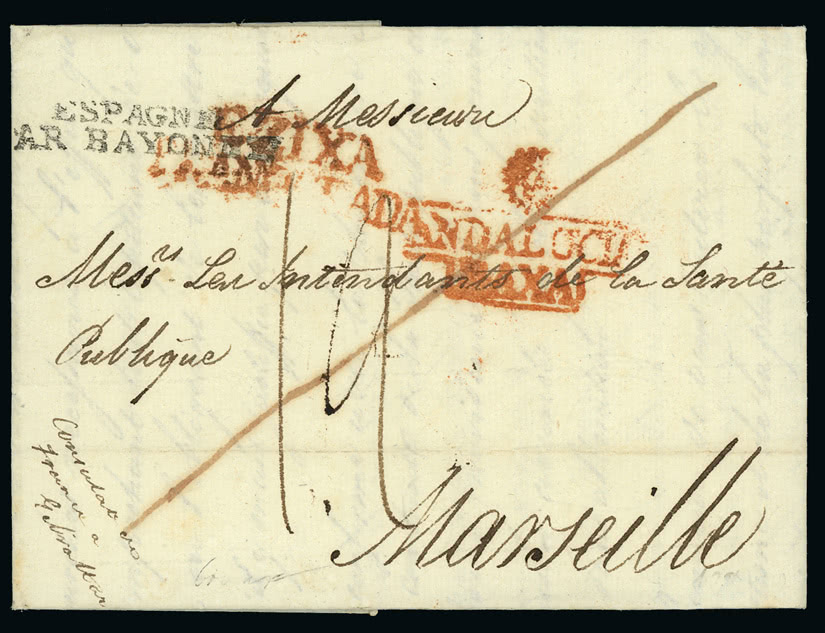 A Messieurs
ESPAGNE
PAR BAYONNE
ANDALUCIA
BAXA
Mess.rs Les Intendants de la Santé
Publique
Consulat de
france a
Gibraltar
Marseille